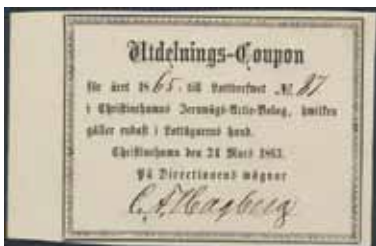 Utdelnings-Coupon
för året 1865. till Lottbrefwet № 87
i Christinehamns Jernwägs-Actie-Bolag, hwilken
gäller endast i Lottägarens hand.
Christinehamn den 24 Mars 1863.
På Directionens wägnar
C. F. Hagberg